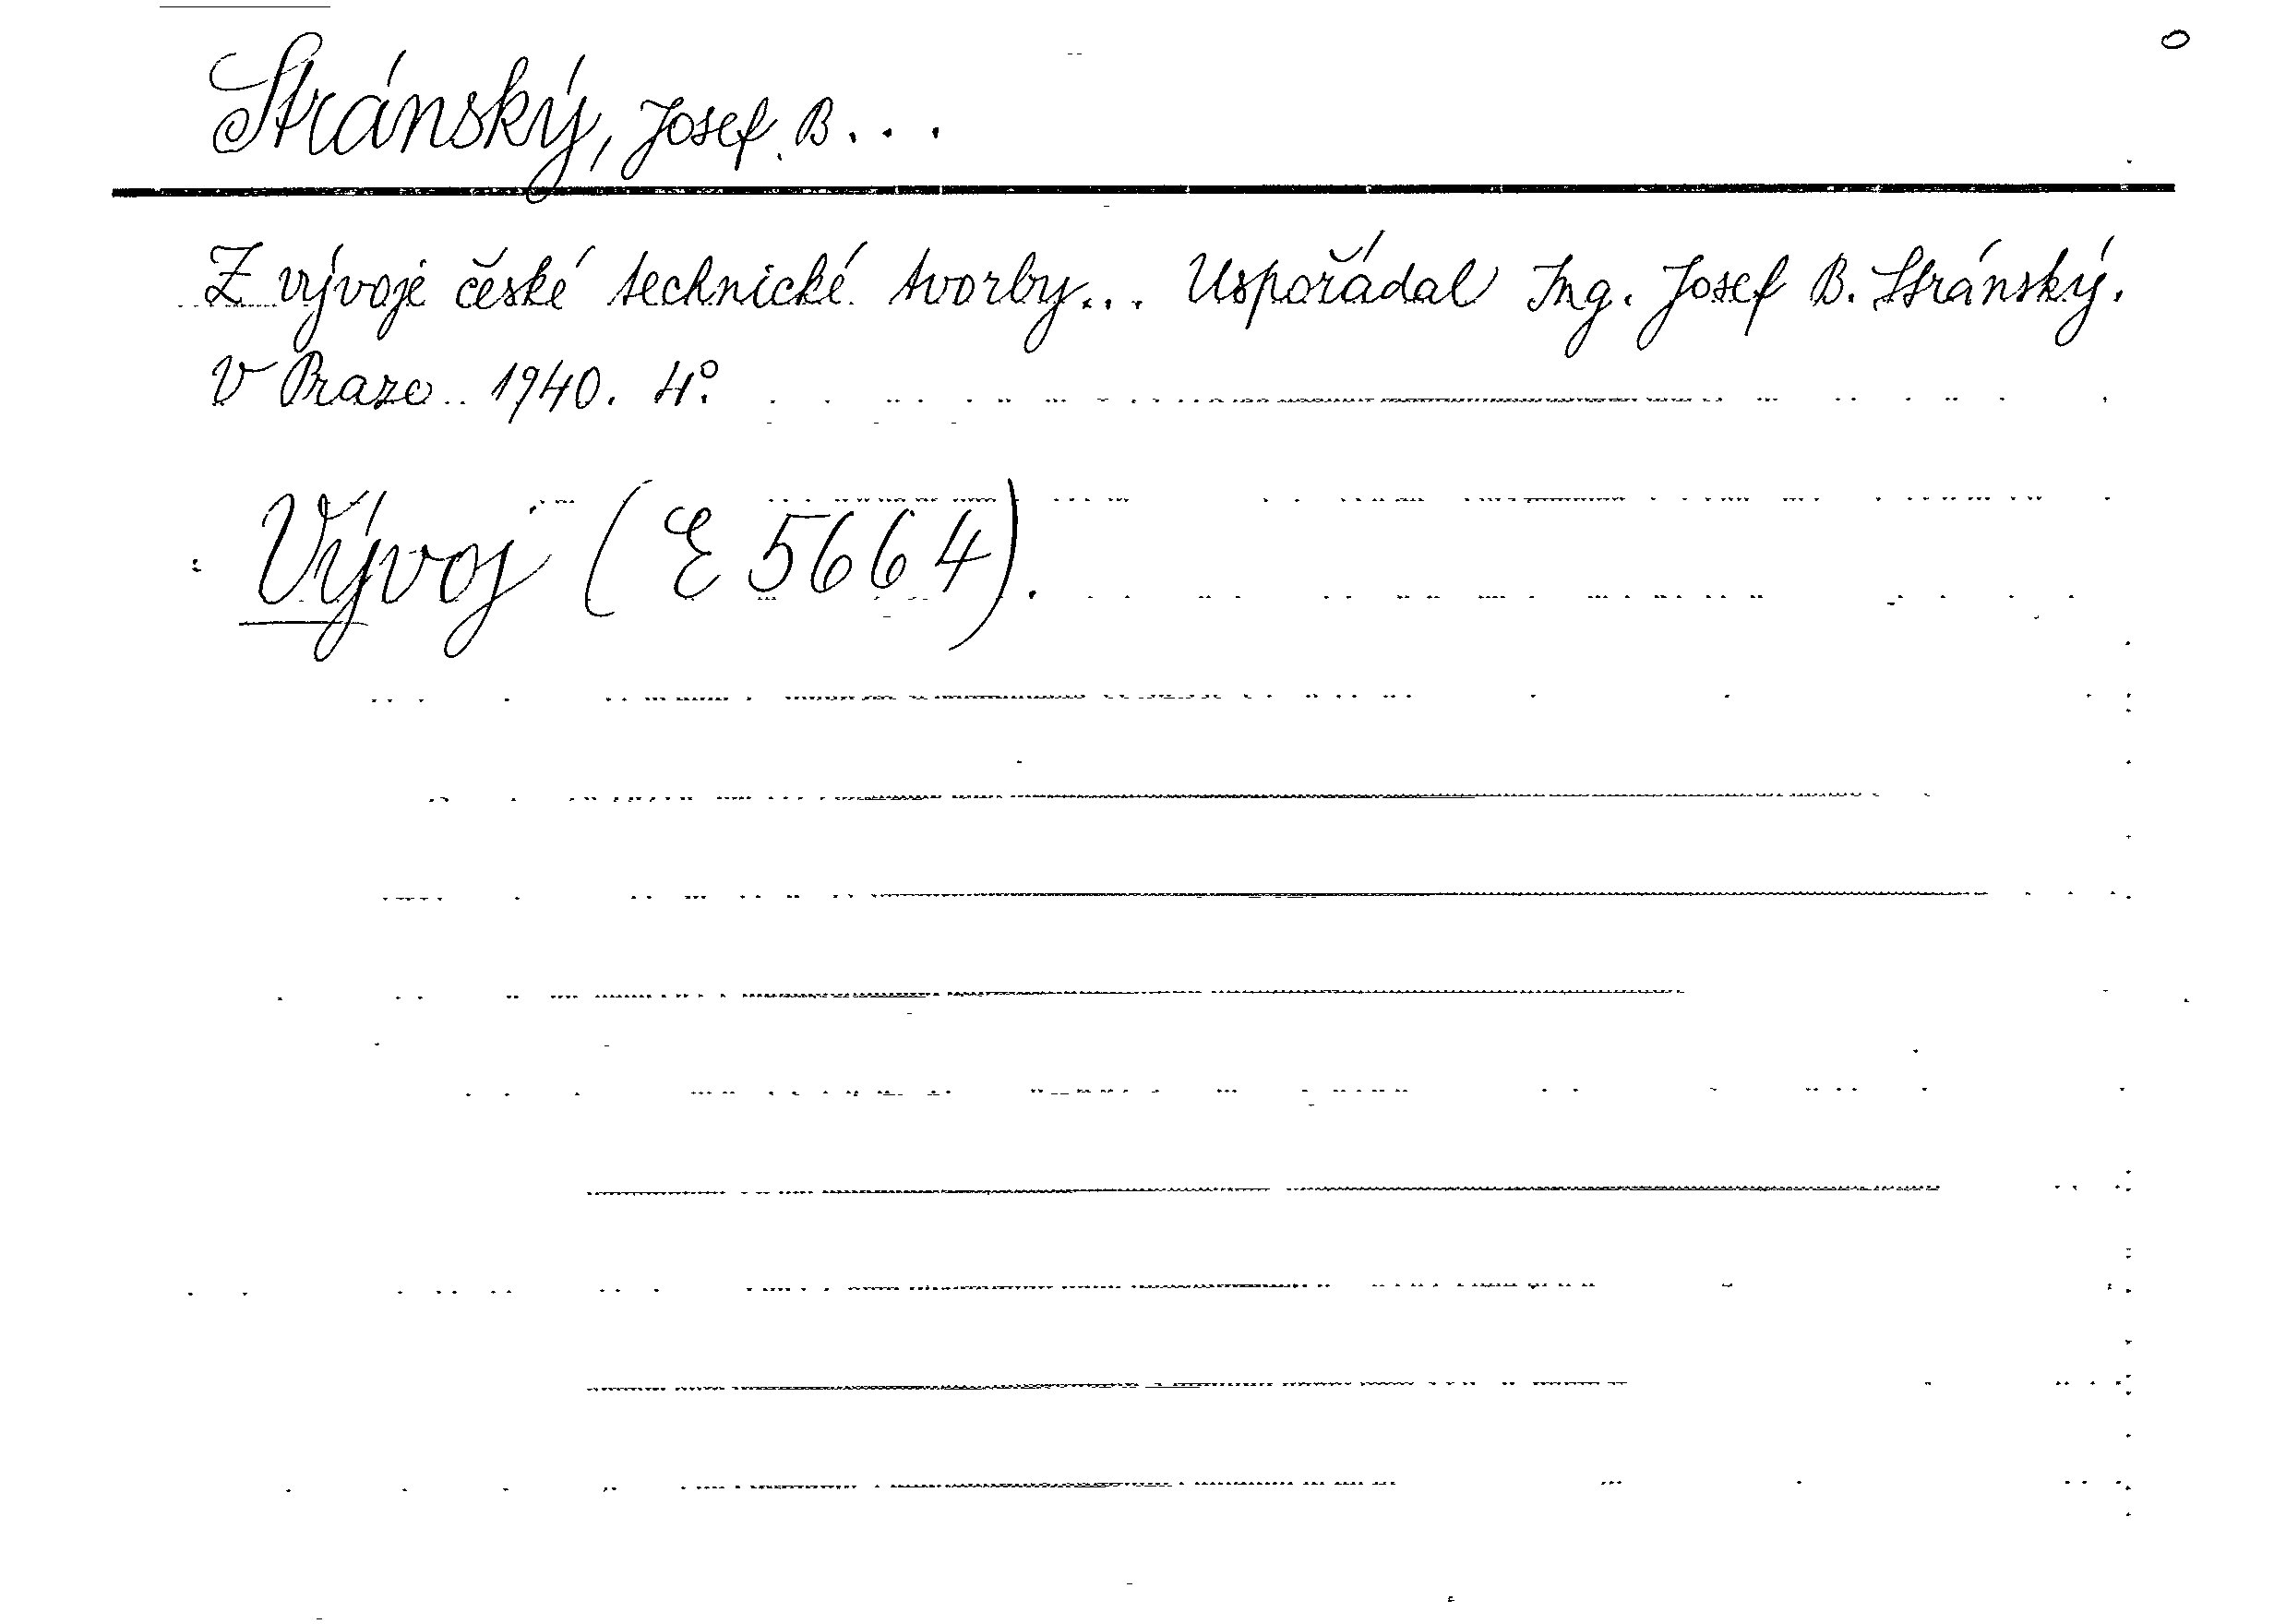 Stránský, Josef B...
Z vývoje české technické tvorby... Uspořádal Ing. Josef B. Stránský.
V Praze. 1940. 4°.
Vývoj (E 5664).